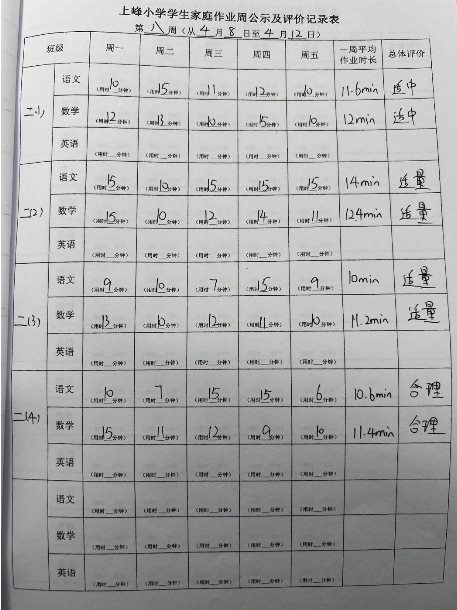 上峰小学学生家庭作业周公示及评价记录表
第 八 周（从 4 月 8 日至 4 月 12 日）
班级 周一 周二 周三 周四 周五 一周平均作业时长 总体评价
二(1) 语文 （用时10分钟） （用时15分钟） （用时11分钟） （用时12分钟） （用时10分钟） 11.6min 适中
数学 （用时12分钟） （用时13分钟） （用时10分钟） （用时15分钟） （用时10分钟） 12min 适中
英语 （用时__分钟） （用时__分钟） （用时__分钟） （用时__分钟） （用时__分钟）
二(2) 语文 （用时15分钟） （用时10分钟） （用时15分钟） （用时15分钟） （用时15分钟） 14min 适量
数学 （用时15分钟） （用时10分钟） （用时12分钟） （用时14分钟） （用时11分钟） 12.4min 适量
英语 （用时__分钟） （用时__分钟） （用时__分钟） （用时__分钟） （用时__分钟）
二(3) 语文 （用时9分钟） （用时10分钟） （用时7分钟） （用时15分钟） （用时9分钟） 10min 适量
数学 （用时13分钟） （用时10分钟） （用时12分钟） （用时11分钟） （用时10分钟） 11.2min 适量
英语 （用时__分钟） （用时__分钟） （用时__分钟） （用时__分钟） （用时__分钟）
二(4) 语文 （用时10分钟） （用时7分钟） （用时15分钟） （用时15分钟） （用时6分钟） 10.6min 合理
数学 （用时15分钟） （用时11分钟） （用时12分钟） （用时9分钟） （用时10分钟） 11.4min 合理
英语 （用时__分钟） （用时__分钟） （用时__分钟） （用时__分钟） （用时__分钟）
语文 （用时__分钟） （用时__分钟） （用时__分钟） （用时__分钟） （用时__分钟）
数学 （用时__分钟） （用时__分钟） （用时__分钟） （用时__分钟） （用时__分钟）
英语 （用时__分钟） （用时__分钟） （用时__分钟） （用时__分钟） （用时__分钟）